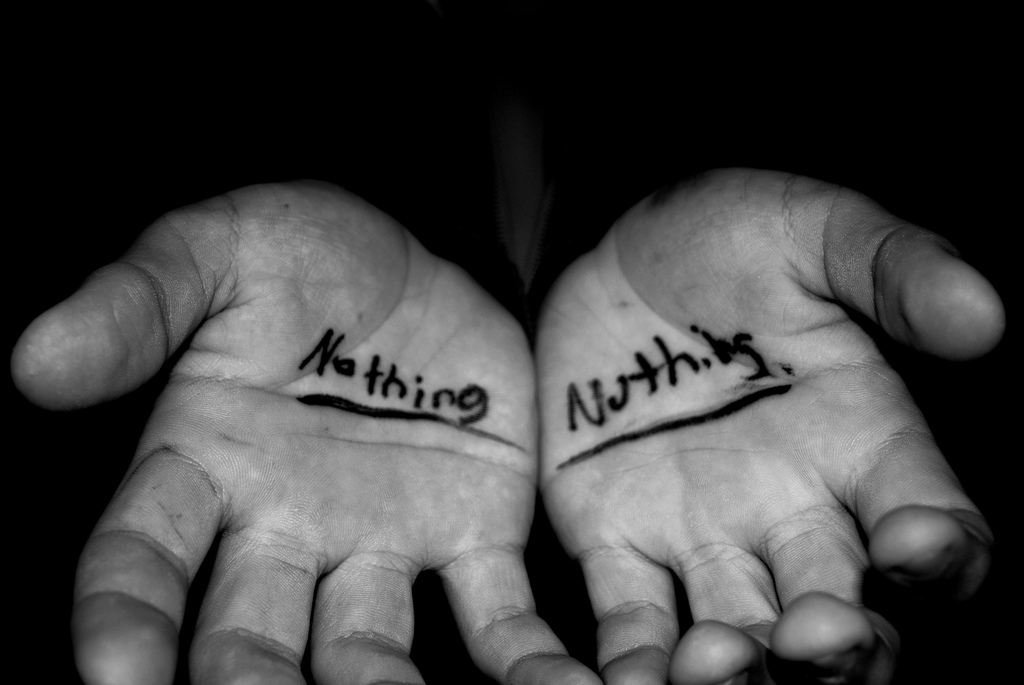 Nothing
Nothing